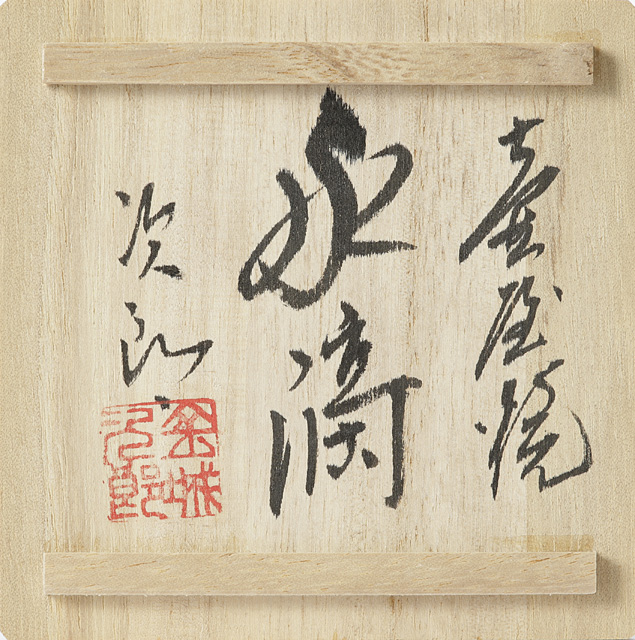 壷屋焼
水滴
次郎
金城次郎